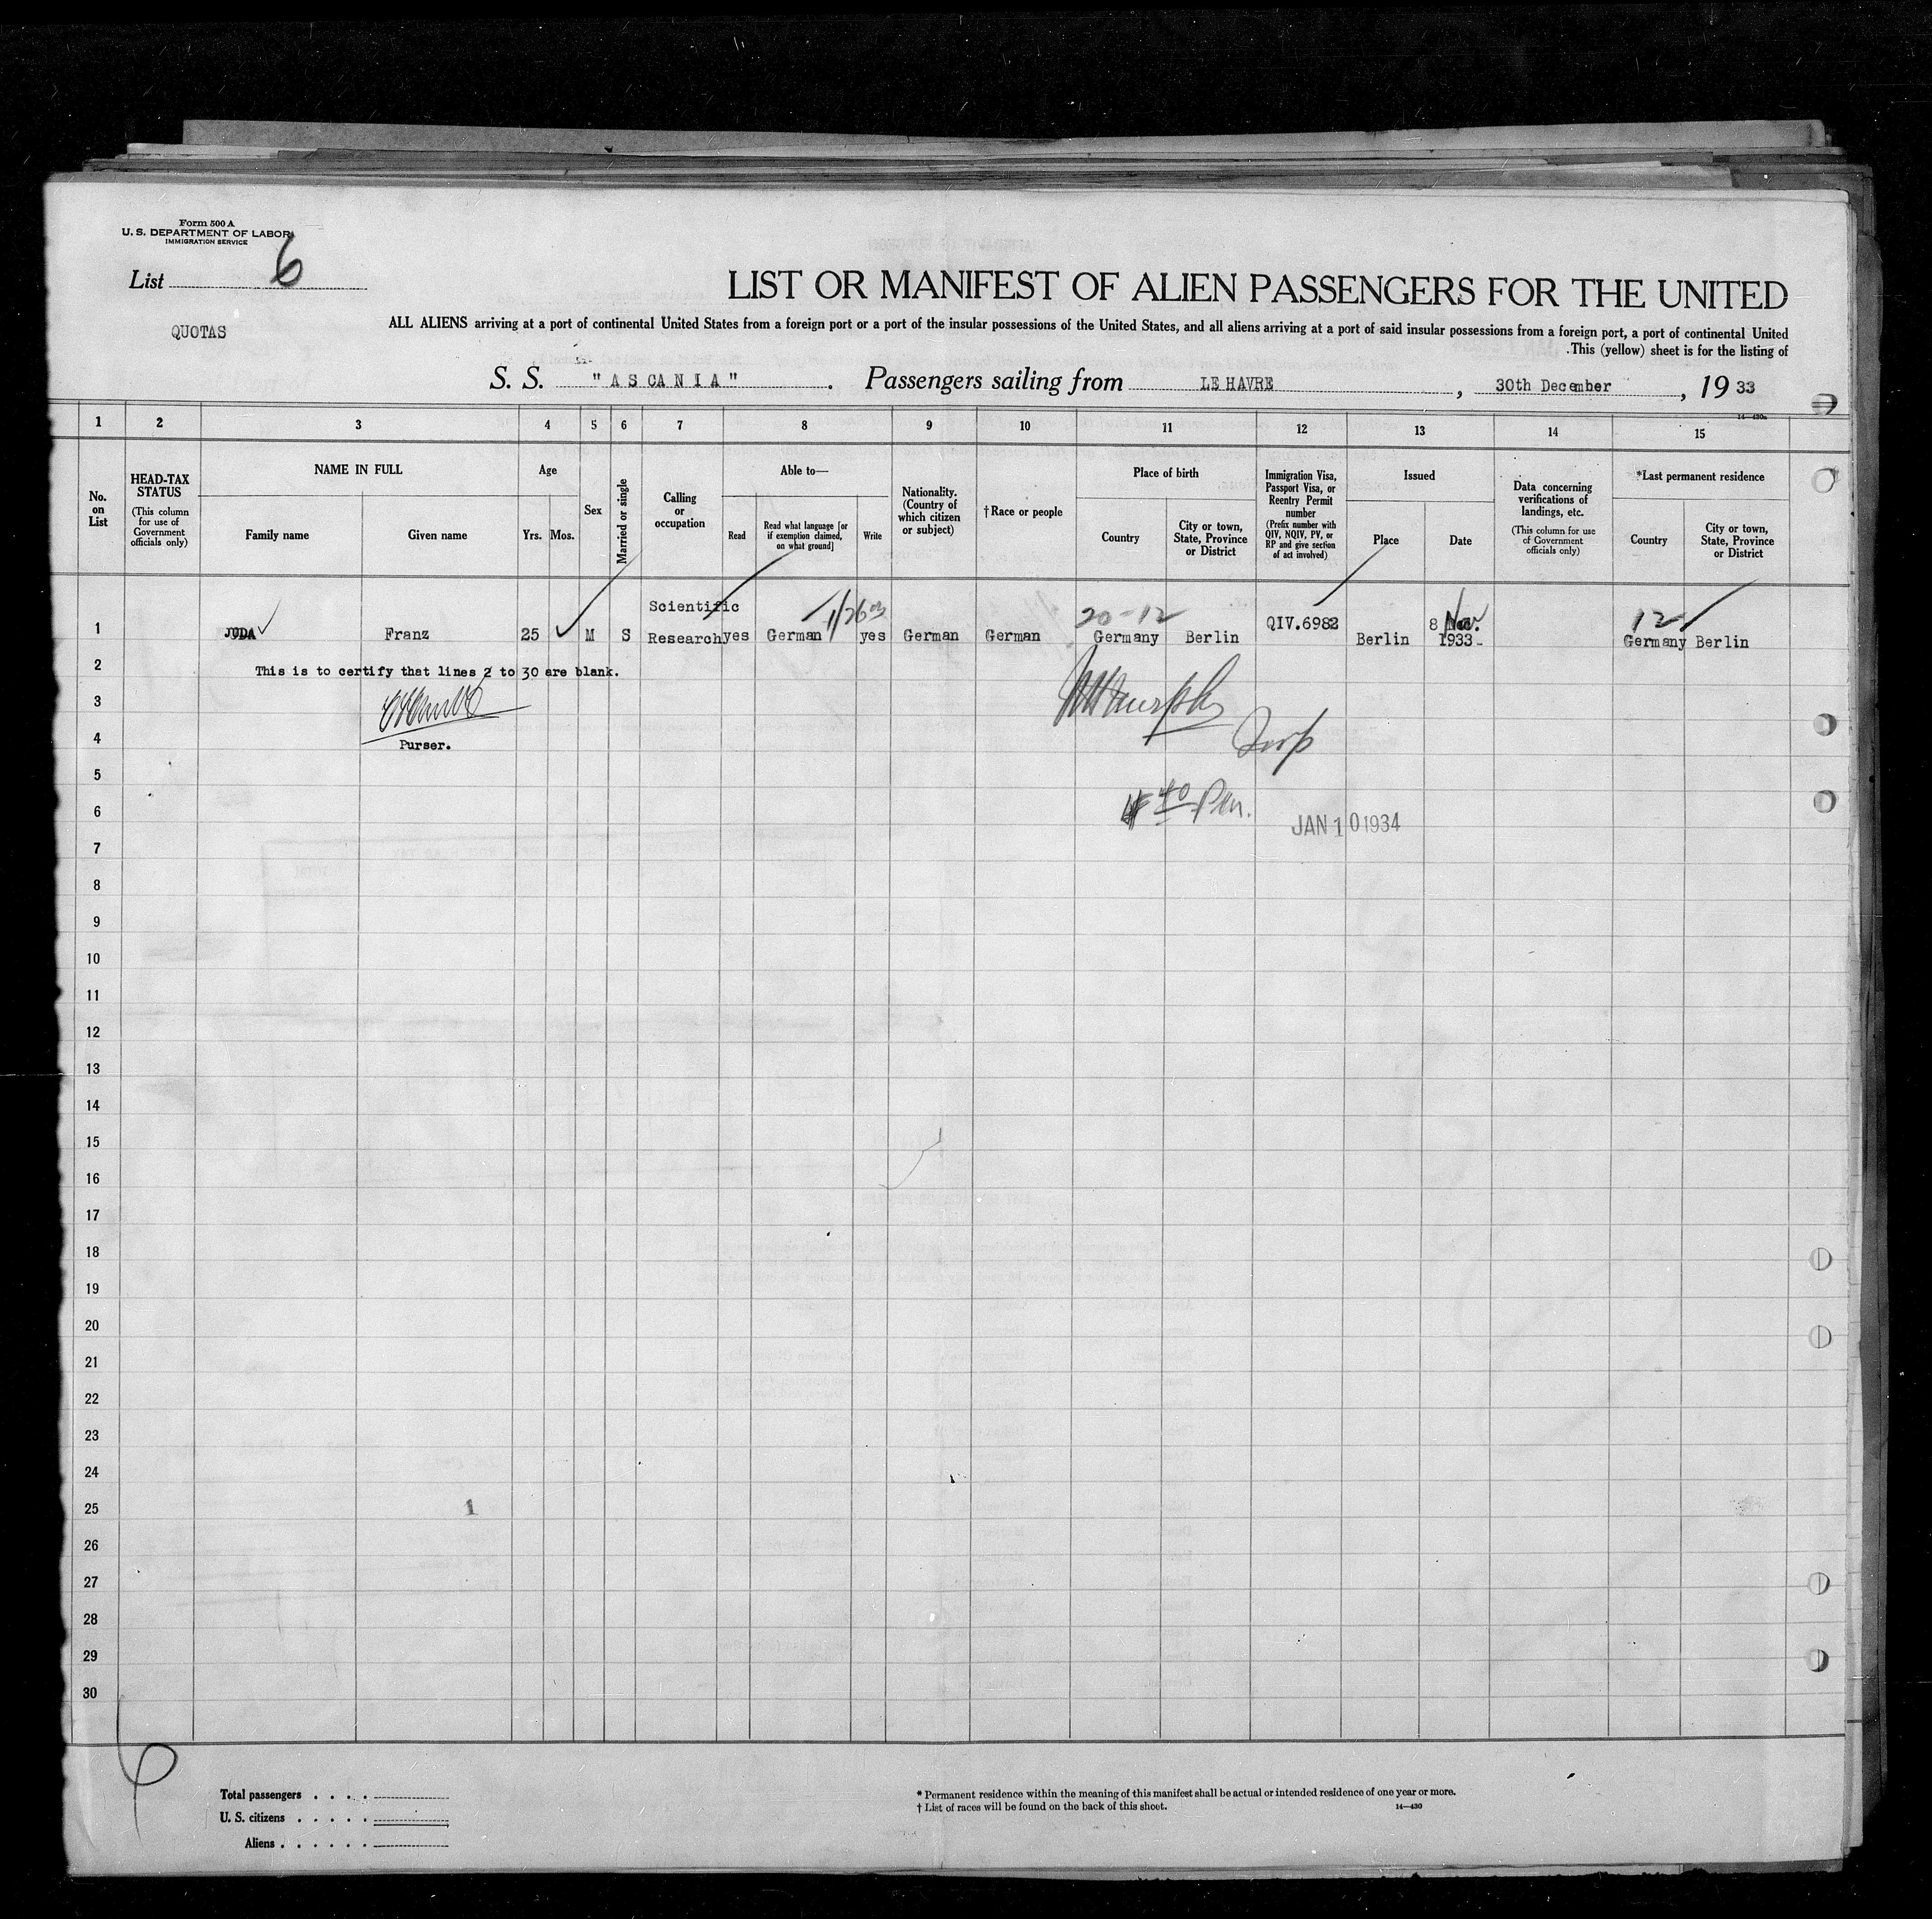 Form 500 A
U. S. DEPARTMENT OF LABOR
IMMIGRATION SERVICE
List 6
QUOTAS
LIST OR MANIFEST OF ALIEN PASSENGERS FOR THE UNITED
ALL ALIENS arriving at a port of continental United States from a foreign port or a port of the insular possessions of the United States, and all aliens arriving at a port of said insular possessions from a foreign port, a port of continental United
.This (yellow) sheet is for the listing of
S. S. "ASCANIA". Passengers sailing from LE HAVRE, 30th December, 19 33
14—430a
1 2 3 4 5 6 7 8 9 10 11 12 13 14 15
No. on List
HEAD-TAX STATUS
(This column for use of Government officials only)
NAME IN FULL
Family name
Given name
Age
Yrs.
Mos.
Sex
Married or single
Calling or occupation
Able to—
Read
Read what language [or if exemption claimed, on what ground]
Write
Nationality. (Country of which citizen or subject)
†Race or people
Place of birth
Country
City or town, State, Province or District
Immigration Visa, Passport Visa, or Reentry Permit number
(Prefix number with QIV, NQIV, PV, or RP and give section of act involved)
Issued
Place
Date
Data concerning verifications of landings, etc.
(This column for use of Government officials only)
*Last permanent residence
Country
City or town, State, Province or District
1/26
20-12
12
1 JUDA Franz 25 M S Scientific Research yes German yes German German Germany Berlin QIV.6982 Berlin 8 Nov. 1933 Germany Berlin
2 This is to certify that lines 2 to 30 are blank.
3
4 Purser.
5
6
JAN 10 1934
7
8
9
10
11
12
13
14
15
16
17
18
19
20
21
22
23
24
25 1
26
27
28
29
30
6
Total passengers . . . .
U. S. citizens . . . . .
Aliens . . . . . .
* Permanent residence within the meaning of this manifest shall be actual or intended residence of one year or more.
† List of races will be found on the back of this sheet.
14—430